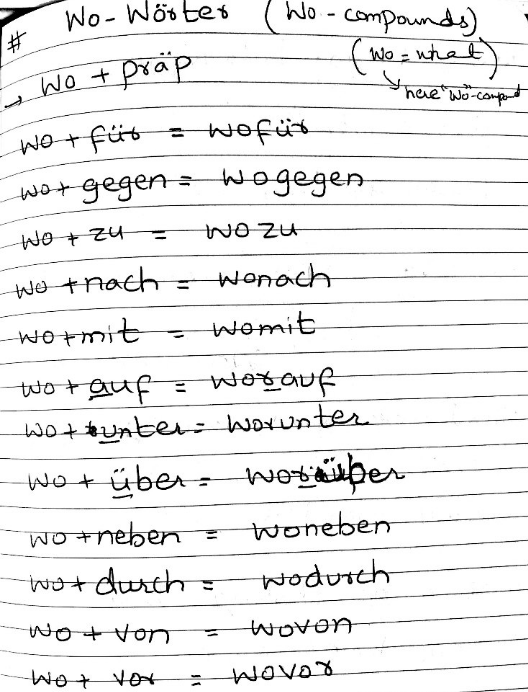 # Wo-Wörter (Wo-compounds)
(wo = what)
→ wo + präp
here "Wo-compound
wo + für = wofür
wo + gegen = wogegen
wo + zu = wozu
wo + nach = wonach
wo + mit = womit
wo + auf = worauf
wo + unter = worunter
wo + über = worüber
wo + neben = woneben
wo + durch = wodurch
wo + von = wovon
wo + vor = wovor